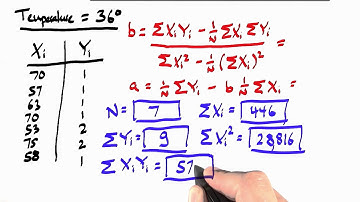 Temperature = 36°
Xi Yi
70 1
57 1
63 1
70 1
53 2
75 2
58 1
b = ΣXiYi - 1/N ΣXi ΣYi / ΣXi² - 1/N (ΣXi)² =
a = 1/N ΣYi - b 1/N ΣXi =
N = 7 ΣXi = 446
ΣYi = 9 ΣXi² = 28,816
ΣXiYi = 57